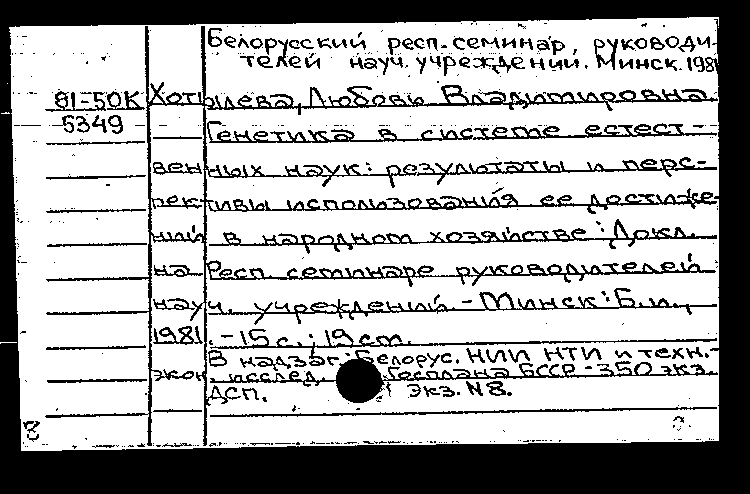 Белорусский респ. семинар, руководи-
телей науч. учреждении. Минск. 1981
81-50К Хотылева, Любовь Владимировна.
5349 Генетика в системе естест-
венных наук: результаты и перс-
пективы использования ее достиже-
ний в народном хозяйстве: Докл.
на Респ. семинаре руководителей
науч. учреждений. - Минск: Б.и.,
1981. - 15 с.; 19 см.
В надзаг.: Белорус. НИИ НТИ и техн.-
экон. исслед. Госплана БССР - 350 экз.
ДСП. Экз. N8.
8